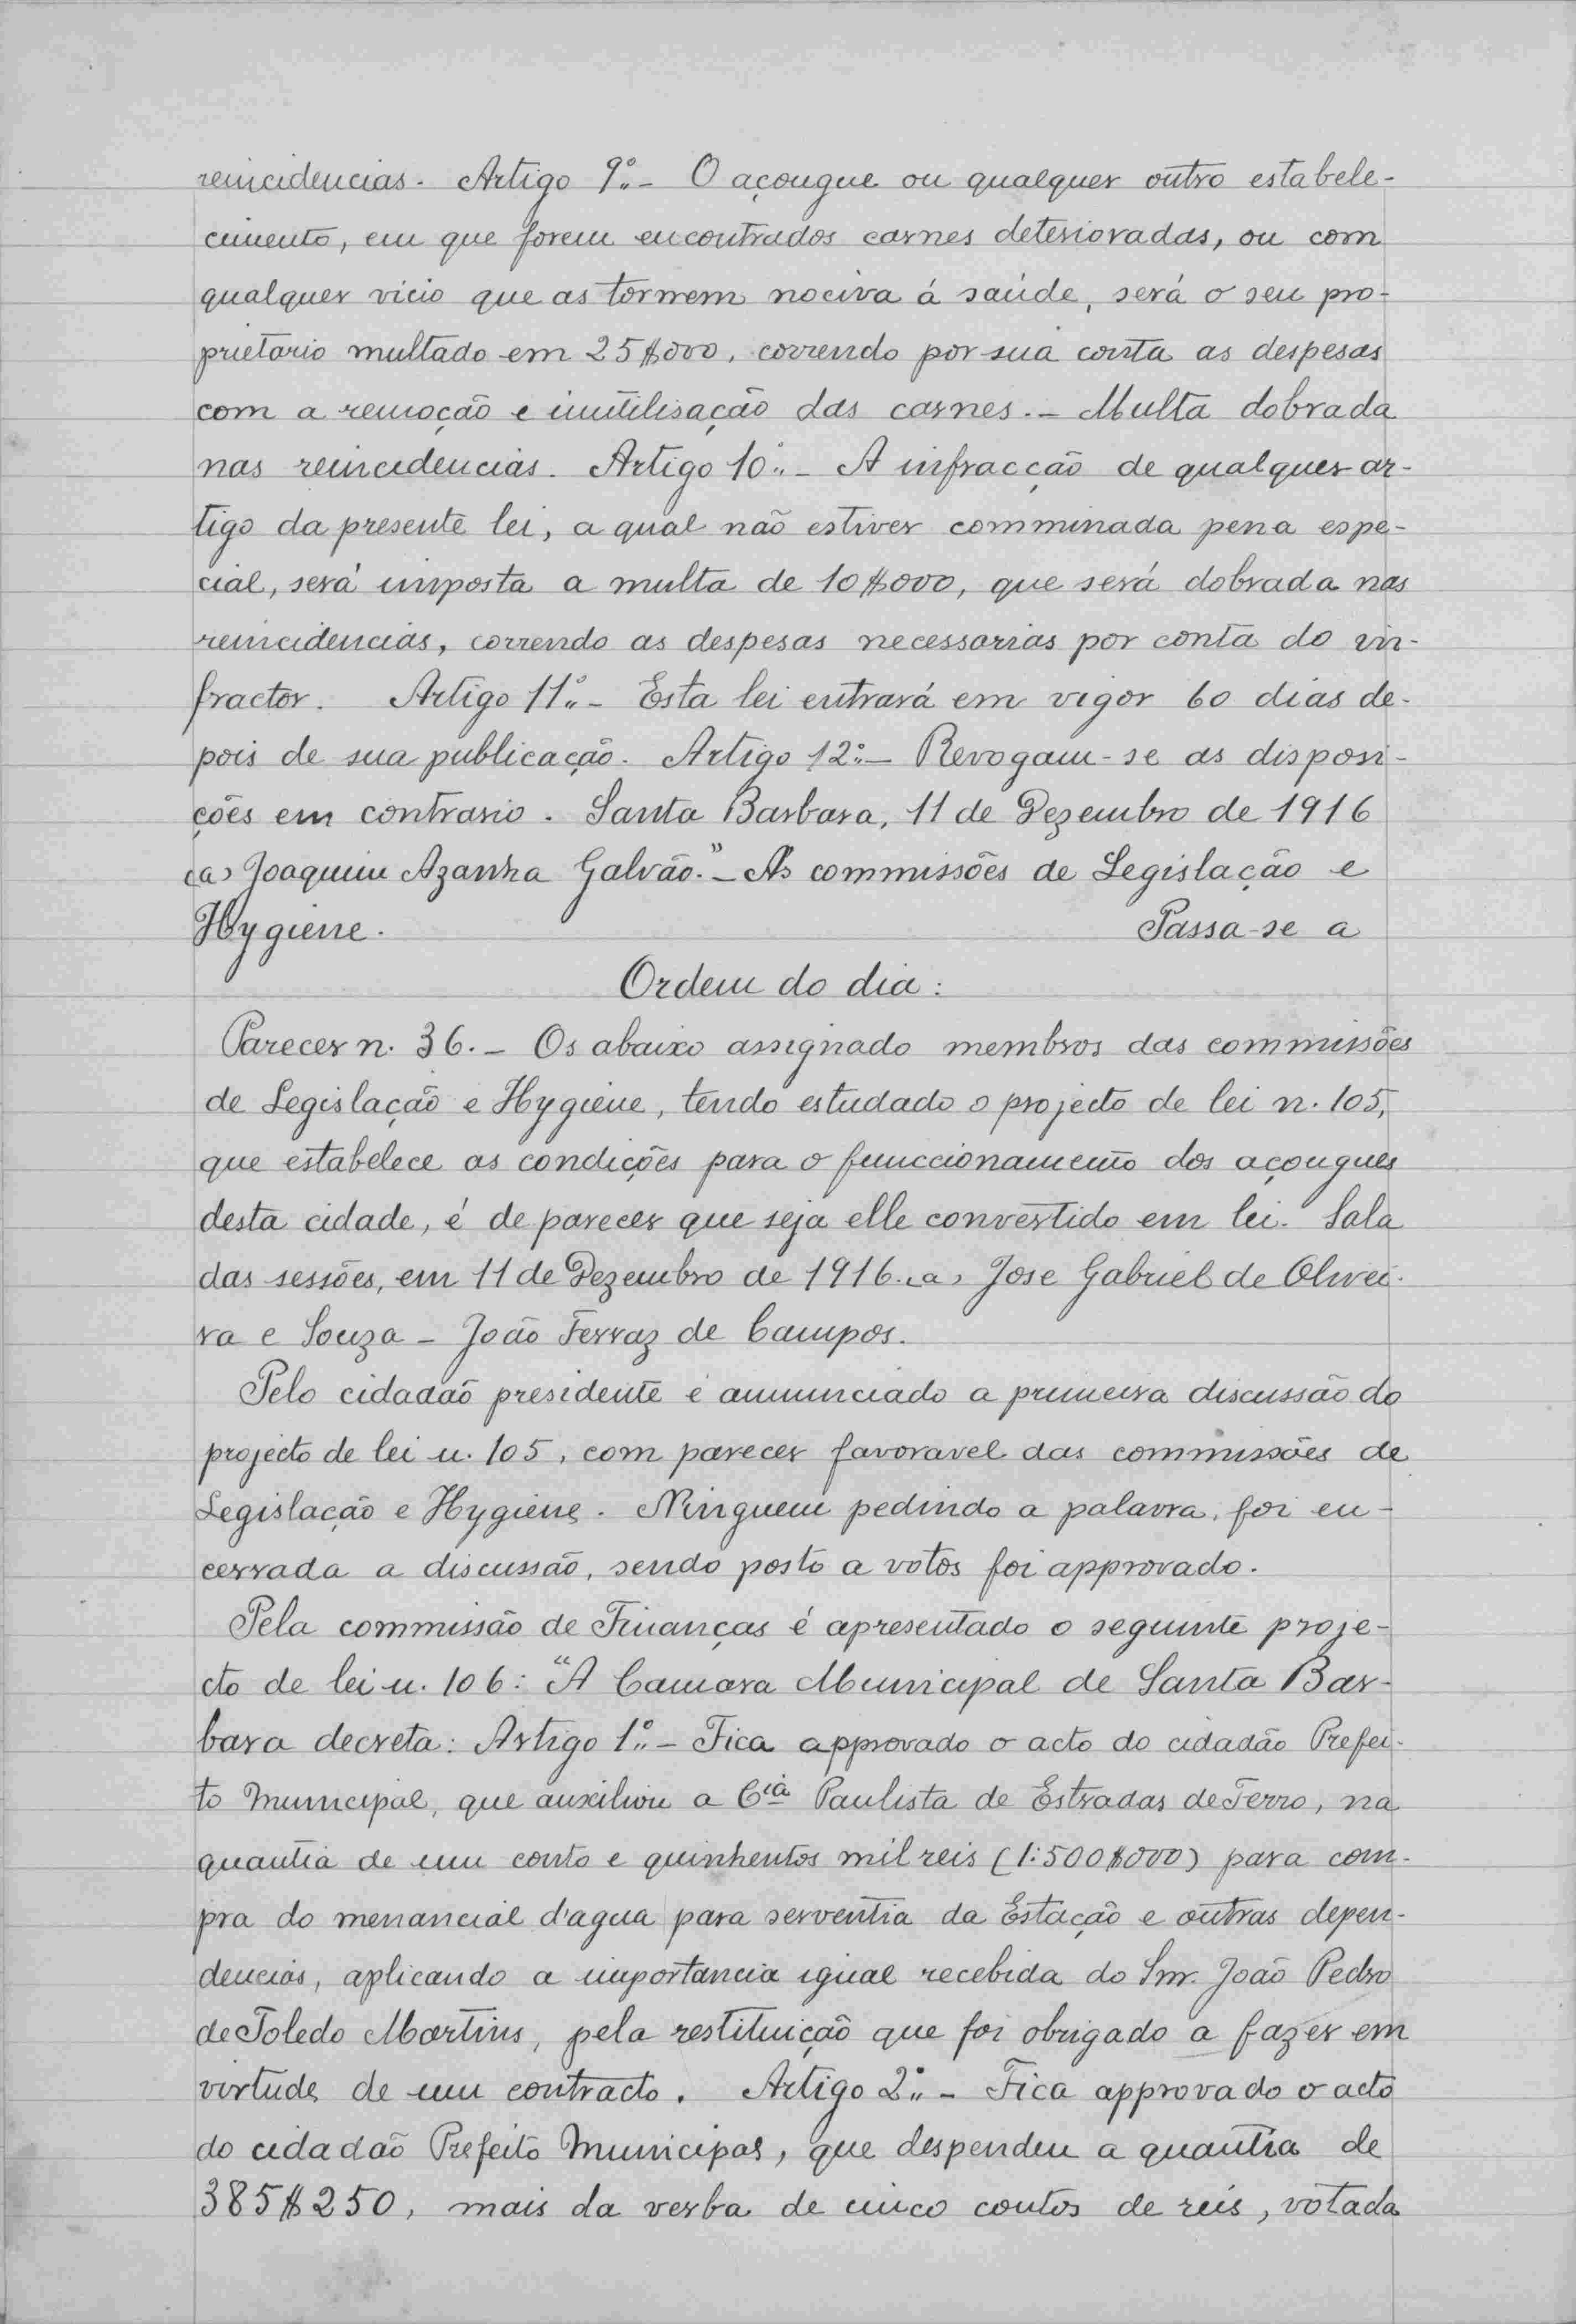 reincidencias. Artigo 9º.- O açougue ou qualquer outro estabele-
cimento, em que forem encontrados carnes deterioradas, ou com
qualquer vicio que as tornem nociva á saúde, será o seu pro-
prietario multado em 25$000, correndo por sua conta as despesas
com a remoção e inutilisação das carnes.- Multa dobrada
nas reincidencias. Artigo 10º.- A infracção de qualquer ar-
tigo da presente lei, a qual não estiver comminada pena espe-
cial, será imposta a multa de 10$000, que será dobrada nas
reincidencias, correndo as despesas necessarias por conta do in-
fractor. Artigo 11º.- Esta lei entrará em vigor 60 dias de-
pois de sua publicação. Artigo 12º.- Revogam-se as disposi-
ções em contrario. Santa Barbara, 11 de Dezembro de 1916
(a) Joaquim Azanha Galvão."- Ás commissões de Legislação e
Hygiene. Passa-se a
Ordem do dia:
Parecer n. 36.- Os abaixo assignado membros das commissões
de Legislação e Hygiene, tendo estudado o projecto de lei n. 105,
que estabelece as condições para o funccionamento dos açougues
desta cidade, é de parecer que seja elle convertido em lei. Sala
das sessões, em 11 de Dezembro de 1916. (a) Jose Gabriel de Olivei-
ra e Souza - João Ferraz de Campos.
Pelo cidadão presidente é annunciado a primeira discussão do
projecto de lei n. 105, com parecer favoravel das commissões de
Legislação e Hygiene. Ninguem pedindo a palavra, foi en-
cerrada a discussão, sendo posto a votos foi approvado.
Pela commissão de Finanças é apresentado o seguinte proje-
cto de lei n. 106: "A Camara Municipal de Santa Bar-
bara decreta: Artigo 1º.- Fica approvado o acto do cidadão Prefei-
to Municipal, que auxiliou a Cia Paulista de Estradas de Ferro, na
quantia de um conto e quinhentos mil reis (1:500$000) para com-
pra do menancial d'agua para serventia da Estação e outras depen-
dencias, aplicando a importancia igual recebida do Snr. João Pedro
de Toledo Martins, pela restituição que foi obrigado a fazer em
virtude de um contracto. Artigo 2º.- Fica approvado o acto
do cidadão Prefeito Municipal, que despendeu a quantia de
385$250, mais da verba de cinco contos de reis, votada